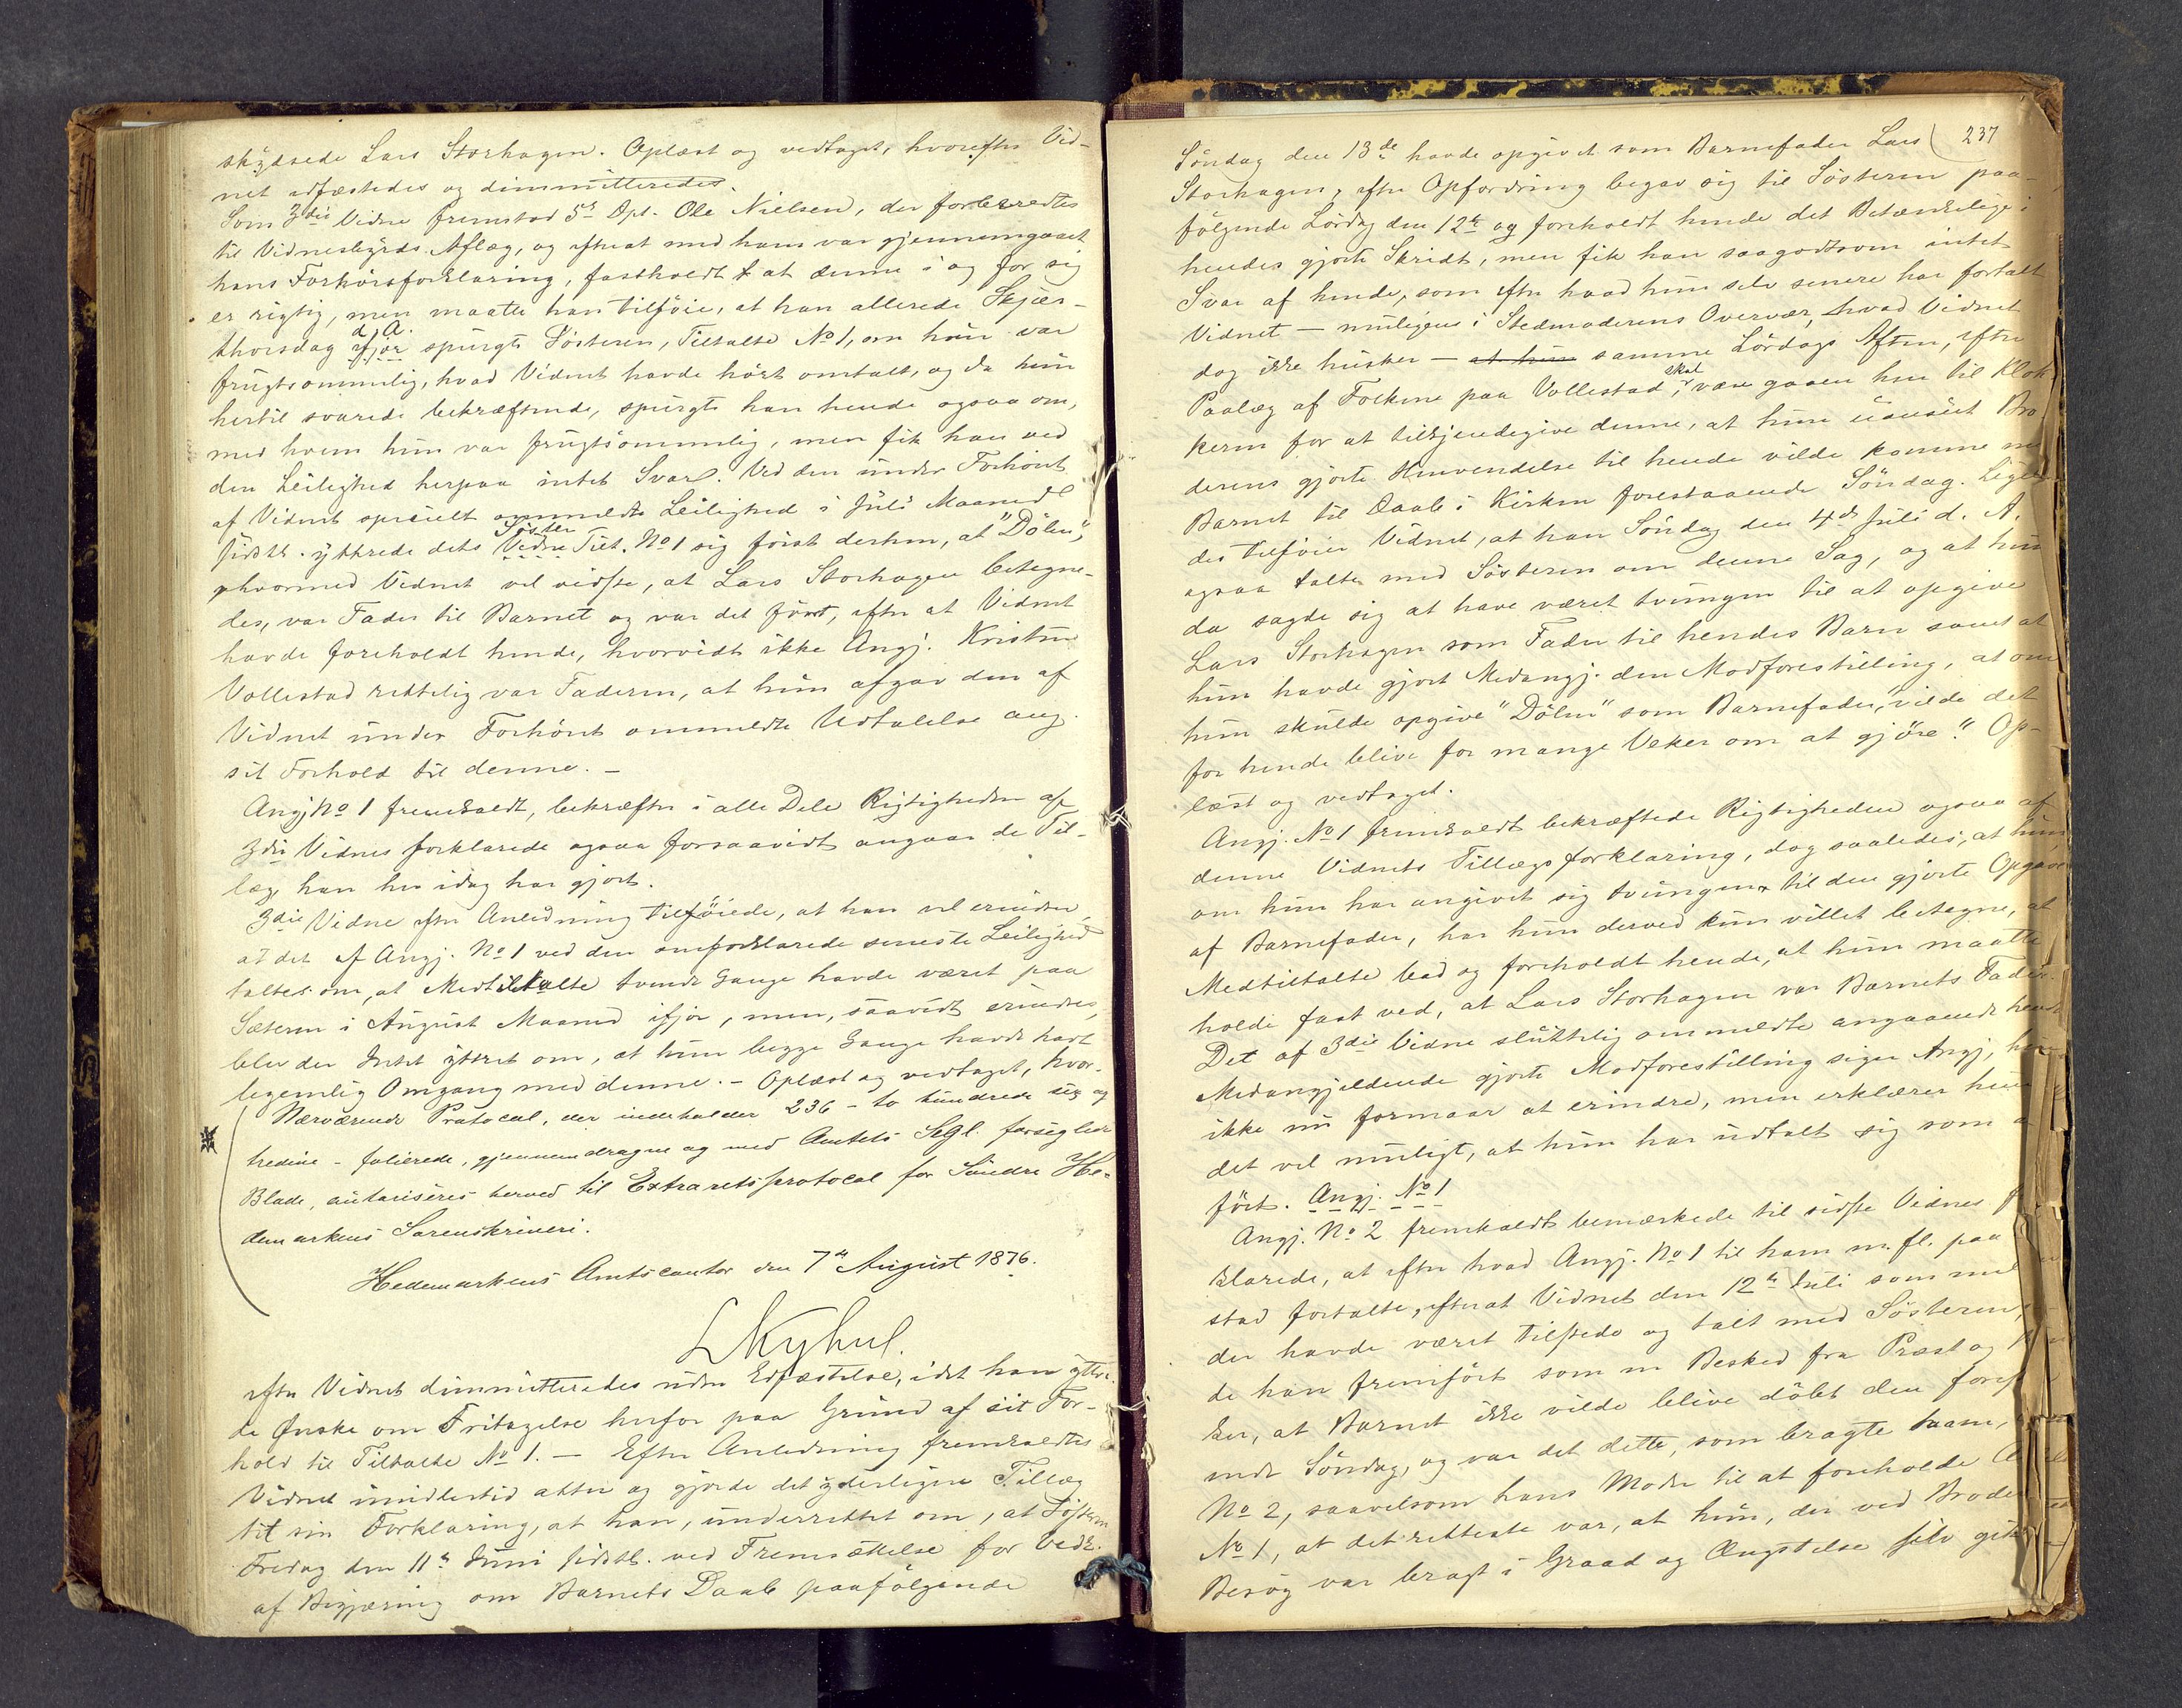 skydsede Lars Storhagen. Oplæst og vedtaget, hvorefter Vid-
net edfæstedes og dimmitteredes.
Som 3die Vidne fremstod 5s Dpt. Ole Nielsen, der forberedtes
til Vidnesbyrds Aflæg, og efterat med ham var gjennemgaaet
hans Forhørsforklaring, fastholdt at denne i og for sig
er rigtig, men maatte han tilføie, at han allerede Skjær-
thorsdag d. A. ifjor spurgte Søsteren, Tiltalte No 1, om hun var
frugtsommelig, hvad Vidnet havde hørt omtalt, og da hun
hertil svarede bekræftende, spurgte han hende ogsaa om,
med hvem hun var frugtsommelig, men fik han ved
den Leilighed herpaa intet Svar. Ved den under Forhøret
af Vidnet specielt ommeldte Leilighed i Juli Maaned
sidstl. yttrede dets Vidne Søster Tilt. No 1 sig først derhen, at "Dølen",
hvormed Vidnet vel vidste, at Lars Storhagen betegne-
des, var Fader til Barnet og var det først, efter at Vidnet
havde foreholdt hende, hvorvidt ikke Angj. Kristian
Vollestad rettelig var Faderen, at hun afgav den af
Vidnet under Forhøret ommeldte Udtalelse ang.
sit Forhold til denne. –
Angj No 1 fremkaldt, bekræfter i alle Dele Rigtigheden af
3die Vidnes forklarede ogsaa forsaavidt angaar de Til-
læg, han her idag har gjort.
3die Vidne efter Anledning tilføiede, at han vel erindrer,
at det af Angj. No 1 ved den omforklarede seneste Leilighed
taltes om, at Medtiltalte tvende Gange havde været paa
Sæteren i August Maaned ifjor, men, saavidt erindres,
blev der Intet yttret om, at hun begge Gange havde havt
legemlig Omgang med denne. – Oplæst og vedtaget, hvor-
Nærværende Protocol, der indeholder 236 – to hundrede sex og
tredive – folierede, gjennemdragne og med Amtets Segl. forseglede
Blade, autoriseres herved til Extraretsprotocol for Søndre He-
demarkens Sorenskriveri.
Hedemarkens Amtscontor den 7de August 1876.
efter Vidnet dimmitteredes uden Edfæstelse, idet han yttre-
de Ønske om Fritagelse herfor paa Grund af sit For-
hold til Tiltalte No 1. – Efter Anledning fremkaldtes
Vidnet imidlertid atter og gjorde det yderligere Tillæg
til sin Forklaring, at han, underrettet om, at Søsteren
Fredag den 11te Juni sidstl. ved Fremsættelse for Vedk.
af Begjæring om Barnets Daab paafølgende
237
Søndag den 13de havde opgivet som Barnefader Lars
Storhagen, efter Opfordring begav sig til Søsteren paa-
følgende Lørdag den 12te og foreholdt hende det Betænkelige i
hendes gjorte Skridt, men fik han saagodtsom intet
Svar af hende, som efter hvad hun selv senere har fortalt
Vidnet – muligens i Stedmoderens Overvær, hvad Vidnet
dog ikke husker – at hun samme Lørdags Aften, efter
Paalæg af Folkene paa Vollestad, skal være gaaen hen til Klok
keren for at tilkjendegive denne, at hun uanseet Bro-
derens gjorte Henvendelse til hende vilde komme med
Barnet til Daab i Kirken forestaaende Søndag. Ligele-
des tilføier Vidnet, at han Søndag den 4de Juli d. A.
ogsaa talte med Søsteren om denne Sag, og at hun
da sagde sig at have været tvungen til at opgive
Lars Storhagen som Fader til hendes Barn samt at
hun havde gjort Medangj. den Modforestilling, at om
hun skulde opgive "Dølen" som Barnefader, "vilde det
for hende blive for mange Veker om at gjøre." Op-
læst og vedtaget.
Angj. No 1 fremkaldt bekræftede Rigtigheden ogsaa af
denne Vidnets Tillægsforklaring, dog saaledes, at hun
om hun har angivet sig tvungen til den gjorte Opgave
af Barnefader, har hun derved kun villet betegne, at
Medtiltalte bad og foreholdt hende, at hun maatte
holde fast ved, at Lars Storhagen var Barnets Fader.
Det af 3die Vidne sluttelig ommeldte angaaende hendes
Medangjeldende gjorte Modforestilling siger Angj, hun
ikke nu formaar at erindre, men erklærer hun
det vel muligt, at hun har udtalt sig som
ført. Angj. No 1
Angj. No 2 fremkaldt bemærkede til sidste Vidnes
klarede, at efter hvad Angj. No 1 til ham m. fl. paa
stad fortalte, efterat Vidnet den 12te Juli som
der havde været tilstede og talt med Søsteren,
de han fremført som en Besked fra Præst og
ker, at Barnet ikke vilde blive døbt den
ende Søndag, og var det dette, som bragte ham,
No 2, saavelsom hans Moder til at foreholde
No 1, at det retteste var, at hun, der ved
Besøg var bragt i Graad og Ængstelse selv